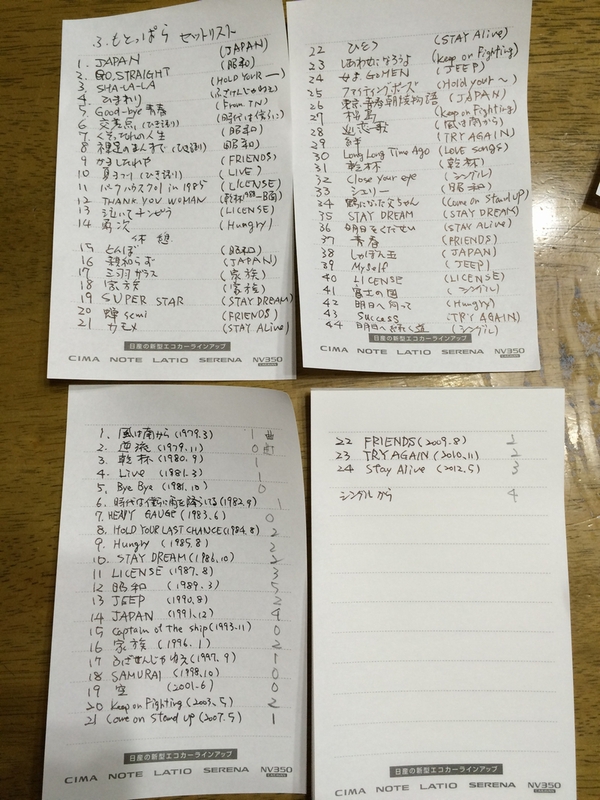 ふもとっぱら セットリスト
1. JAPAN (JAPAN)
2 GO STRAIGHT (昭和)
3 SHA-LA-LA (HOLD YOUR ー)
4 ひまわり (ふざけんじゃねえ)
5 Good-bye 青春 (From TN)
6 交差点 (ひき語り) (時代は僕らに〜)
7 くそったれの人生 (昭和)
8 裸足のまんまで (ひき語り) (昭和)
9 かましたれや (FRIENDS)
10 夏 (ひき語り) (LIVE)
11 パークハウス701 in 1985 (LICENSE)
12 THANK YOU WOMAN
13 泣いてチンピラ (LICENSE)
14 勇次 (Hungry)
休 憩
15 とんぼ (昭和)
16 親知らず (JAPAN)
17 三羽ガラス (家族)
18 家族 (家族)
19 SUPER STAR (STAY DREAM)
20 蝉 semi (FRIENDS)
21 カモメ (STAY Alive)
日産の新型エコカーラインアップ
CIMA NOTE LATIO SERENA NV350
22 ひとつ (STAY Alive)
23 しあわせになろうよ (Keep on Fighting)
24 女よ、GOMEN (JEEP)
25 ファイティングポーズ (Hold your 〜)
26 東京青春朝焼物語 (JAPAN)
27 桜島 (Keep on Fighting)
28 巡恋歌 (風は南から)
29 絆 (TRY AGAIN)
30 Long Long Time Ago (LOVE songs)
31 乾杯 (乾杯)
32 Close your eye (シングル)
33 シェリー (昭和)
34 野良になった父ちゃん (Come on Stand up)
35 STAY DREAM (STAY DREAM)
36 明日をくだせえ (STAY Alive)
37 青春 (FRIENDS)
38 しゃぼん玉 (JAPAN)
39 Myself (JEEP)
40 LICENSE (LICENSE)
41 富士の国 (シングル)
42 明日へ向って (Hungry)
43 Success (TRY AGAIN)
44 明日へ続く道 (シングル)
日産の新型エコカーラインアップ
CIMA NOTE LATIO SERENA NV350
1. 風は南から (1979.3) 1 曲
2. 逆流 (1979.11) 0
3. 乾杯 (1980.9) 1
4. Live (1981.3) 1
5. Bye Bye (1981.10) 0
6. 時代は僕らに雨を降らしてる (1982.9) 1
7. HEAVY GAUGE (1983.6) 0
8. HOLD YOUR LAST CHANCE (1984.8) 2
9. Hungry (1985.8) 2
10. STAY DREAM (1986.10) 2
11 LICENSE (1987.8) 3
12 昭和 (1989.3) 5
13 JEEP (1990.8) 2
14 JAPAN (1991.12) 4
15 Captain of the ship (1993.11) 0
16 家族 (1996.1) 2
17 ふざけんじゃねえ (1997.9) 1
18 SAMURAI (1998.10) 0
19 空 (2001.6) 0
20 Keep on Fighting (2003.5) 2
21 Come on Stand up (2007.5) 1
日産の新型エコカーラインアップ
CIMA NOTE LATIO SERENA NV350
22 FRIENDS (2009.8) 2
23 TRY AGAIN (2010.11) 2
24 Stay Alive (2012.5) 3
シングルから 4
日産の新型エコカーラインアップ
CIMA NOTE LATIO SERENA NV350